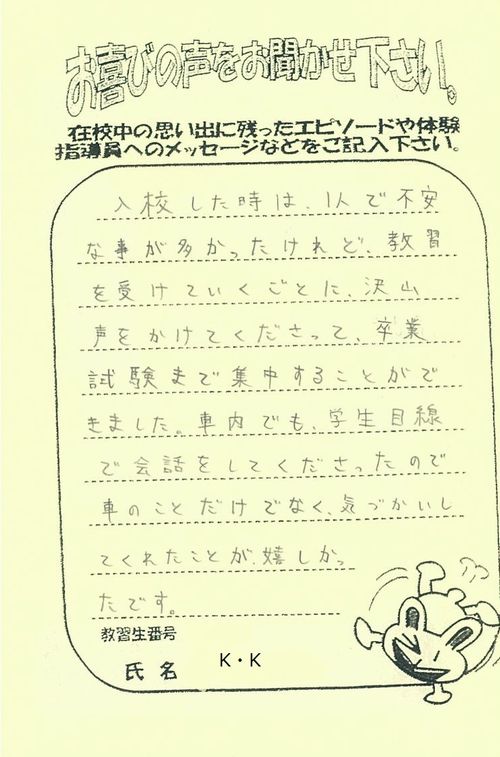 お喜びの声をお聞かせ下さい。
在校中の思い出に残ったエピソードや体験
指導員へのメッセージなどをご記入下さい。
入校した時は、1人で不安
な事が多かったけれど、教習
を受けていくごとに、沢山
声をかけてくださって、卒業
試験まで集中することがで
きました。車内でも、学生目線
で会話をしてくださったので
車のことだけでなく、気づかいし
てくれたことが、嬉しかっ
たです。
教習生番号
氏名 K・K